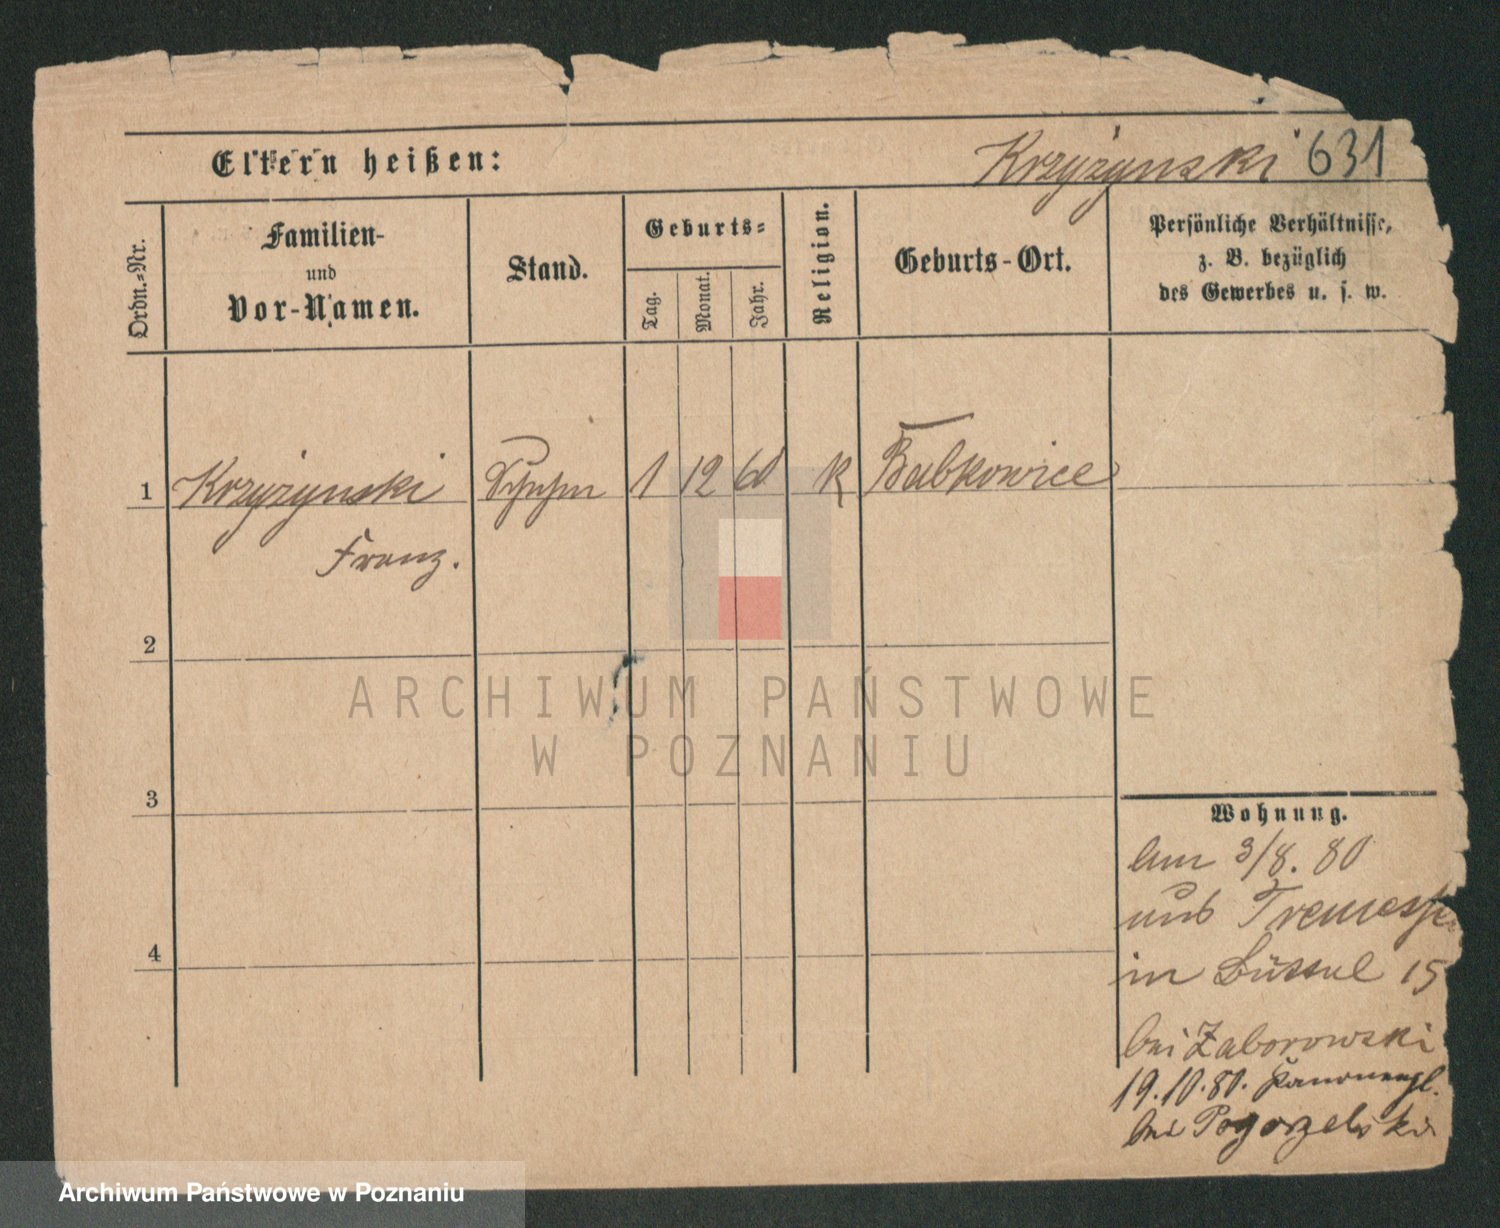 Eltern heißen:
Krzyżynski 631
Ordn.-Nr.
Familien-
und
Vor-Namen.
Stand.
Geburts-
Tag.
Monat.
Jahr.
Religion.
Geburts-Ort.
Persönliche Verhältnisse,
z. B. bezüglich
des Gewerbes u. s. w.
1 Krzyżynski 1 12 60 K Babkowice
Franz.
2
3
4
ARCHIWUM PAŃSTWOWE
W POZNANIU
Wohnung.
Am 3/8. 80
aus
in 15
bei Zaborowski
19.10.80.
bei Pogorzelski
Archiwum Państwowe w Poznaniu